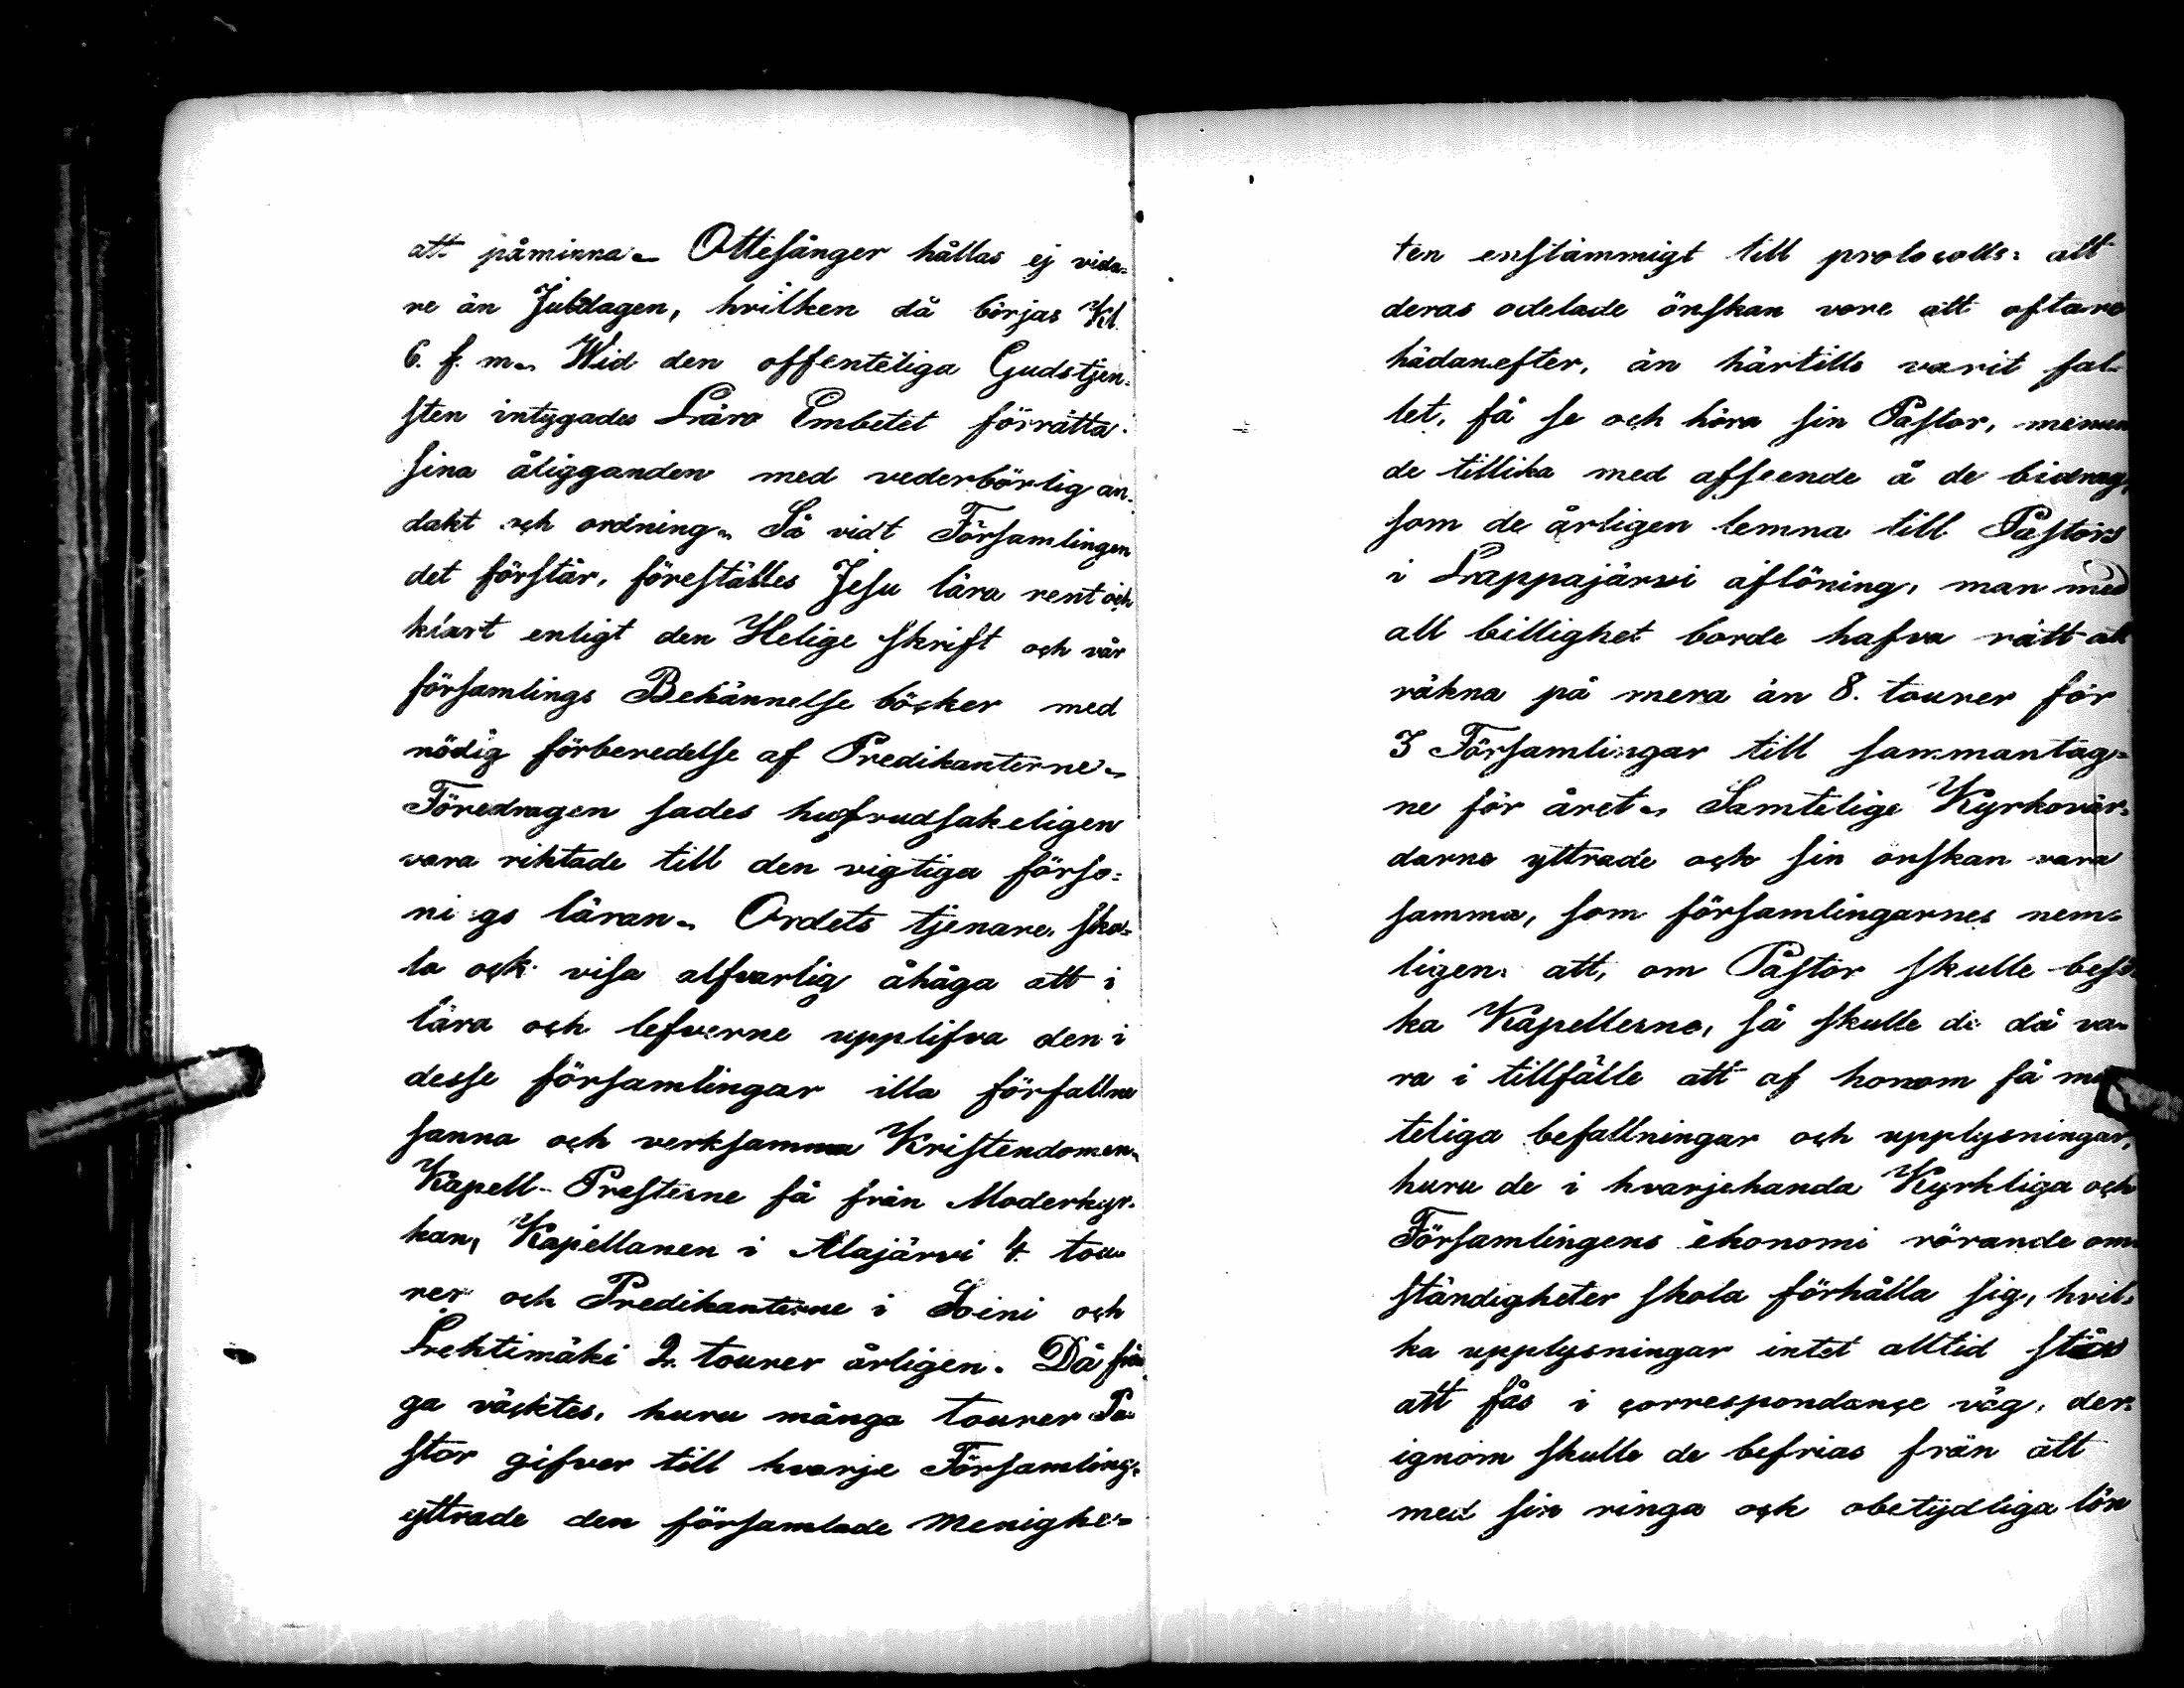 att påminna. Ottesånger hållas ej vida-
re än Juldagen, hvilken då börjas Kl.
6. f. m. Wid den offenteliga Gudstjen-
sten intygades Läro Embetet förrätta
sina åligganden med vederbörlig an-
dakt och ordning. Så vidt Församlingen
det förstår, föreställes Jesu lära rent och
klart enligt den Helige Skrift och vår
församlings Bekännelse böcker med
nödig förberedelse af Predikanterne.
Föredragen sades hufvudsakeligen
vara riktade till den vigtiga förso-
nings läran. Ordets tjenare ska-
la ock visa alfvarlig åhåga att i
lära och lefverne upplifva den i
desse församlingar illa förfallne
sanna och verksamma Kristendomen.
Kapell-Presterne få från Moderkyr-
kan, Kapellanen i Alajärvi 4 tou-
rer och Predikanterne i Soini och
Lehtimäki 2. tourer årligen. Då frå-
ga väcktes, huru många tourer Pa-
stor gifver till hvarje Församling,
yttrade den församlade menighe-
ten enstämmigt till protocolls: att
deras odelade önskan vore att oftare
hädanefter, än härtills varit fal-
let, få se och höra sin Pastor, menan
de tillika med afseende å de bidrag,
som de årligen lemna till Pastors
i Lappajärvi aflöning, man med
all billighet borde hafva rätt att
räkna på mera än 8. tourer för
3 Församlingar till sammantag-
ne för året. Samtelige Kyrkovär-
darne yttrade och sin önskan vara
samma, som församlingarnes nem-
ligen: att, om Pastor skulle besö-
ka Kapellerne, så skulle de då va-
ra i tillfälle att af honom få
teliga befallningar och upplysningar,
huru de i hvarjehanda Kyrkliga och
Församlingens ekonomi rörande om-
ständigheter skola förhålla sig, hvil-
ka upplysningar intet alltid stås
att fås i correspondance väg, der-
ignom skulle de befrias från att
med sin ringa och obetydliga lön